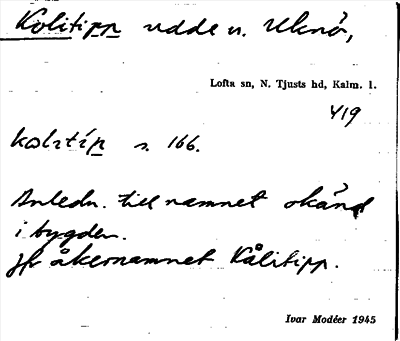 Kolitipp udde n. Uknö,
Lofta sn, N. Tjusts hd, Kalm. l.
419
s. 166.
Anledn. till namnet okänd
i bygden.
Jfr åkernamnet Kålitipp.
Ivar Modéer 1945